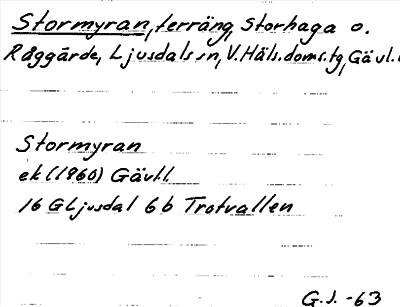 Stormyran, terräng, Storhaga o.
Råggärde, Ljusdals sn, V. Häls. doms. tg, Gävl.
Stormyran
ek (1960) Gävl.l.
16 G Ljusdal 6 b Trotvallen
G.J. -63